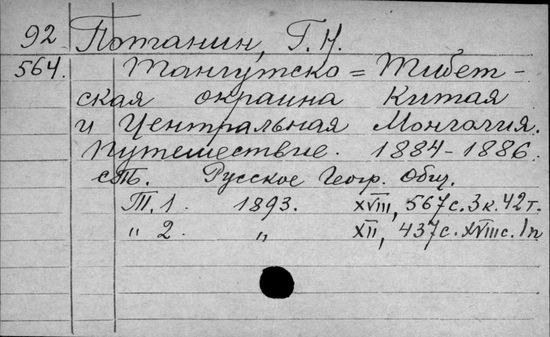 92 Потанин, Г. Н.
564. Тангутско=Тибет-
ская окраина Китая
и Центральная Монголия.
Путешествие. 1884-1886.
СПб. Русское Геогр. Общ.
Т. 1. 1893. XVIII, 567 с. 3 к. 42 т.
" 2. " XII, 437 с. XVIII с. 1 п